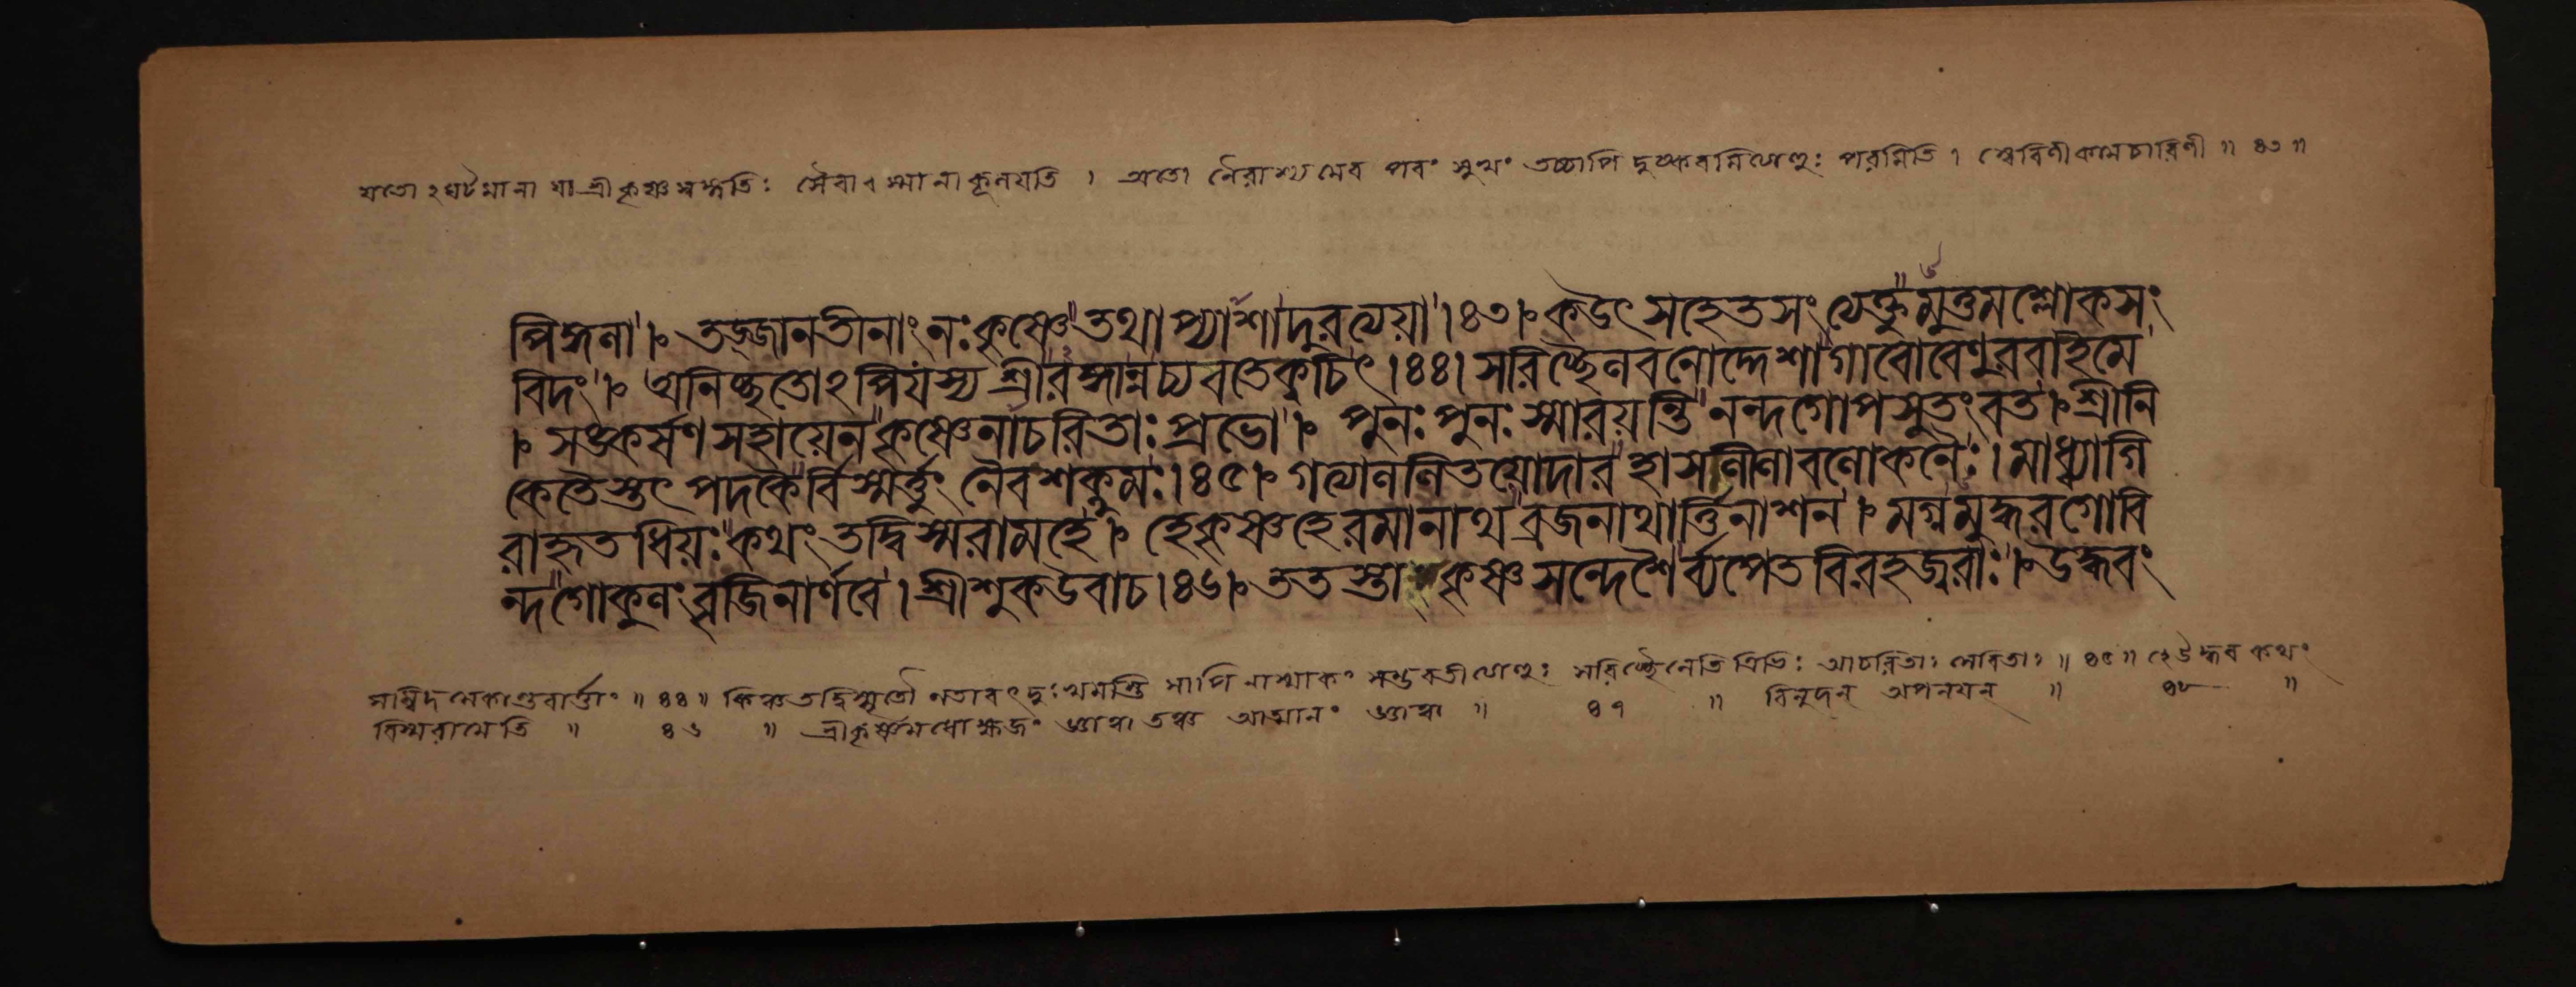 যতো ২ঘটমানা যা শ্রীকৃষ্ণসঙ্গতিঃ সৈবাবস্মানাকূলয়তি । অতো নৈরাশ্যমেব পরং সুখং তথাপি দুষ্করমিত্যাহুঃ পরমিতি । স্বৈরিণী কামচারিণী ॥ ৪৩ ॥
পিঙ্গলা । তজ্জানতীনাং নঃ কৃষ্ণে তথাপ্যাশা দুরত্যয়া । ৪৩ । ক উৎসহেত সংত্যক্তুমুত্তমশ্লোকসং
বিদং । অনিচ্ছতোঽপি যস্য শ্রীরঙ্গান্ন চ্যবতে ক্বচিৎ । ৪৪ । সরিচ্ছৈলবনোদ্দেশা গাবো বেণুরবা ইমে
। সঙ্কর্ষণসহায়েন কৃষ্ণেনাচরিতাঃ প্রভো । পুনঃ পুনঃ স্মারয়ন্তি নন্দগোপসুতং বত । শ্রীনি
কেতৈস্তৎপদকৈর্বিস্মর্ত্তুং নৈব শক্নুমঃ । ৪৫ । গত্যা ললিতয়োদার হাসলীলাবলোকনৈঃ । মাধ্ব্যা গি
রা হৃতধিয়ঃ কথং তদ্বিস্মরামহে । হে কৃষ্ণ হে রমানাথ ব্রজনাথার্ত্তিনাশন । মগ্নমুদ্ধর গোবি
ন্দ গোকুলং বৃজিনার্ণবে । শ্রীশুক উবাচ । ৪৬ । ততস্তাঃ কৃষ্ণসন্দেশৈর্ব্যপেতবিরহজ্বরাঃ । উদ্ধবং
সম্বিদমেকান্তবার্ত্তাং ॥ ৪৪ ॥ কিঞ্চ তদ্বিস্মৃতৌ ন তাবৎ দুঃখমস্তি সাপি নাস্মাকং সম্ভবতীত্যাহুঃ সরিচ্ছৈলেতি ত্রিভিঃ আচরিতাঃ সেবিতাঃ ॥ ৪৫ ॥ হে উদ্ধব কথং
বিস্মরামেতি ॥ ৪৬ ॥ শ্রীকৃষ্ণমধোক্ষজং জ্ঞাত্বা তঞ্চ আত্মানং জ্ঞাত্বা ॥ ৪৭ ॥ বিনুদন্ অপনয়ন্ ॥ ৪৮ ॥